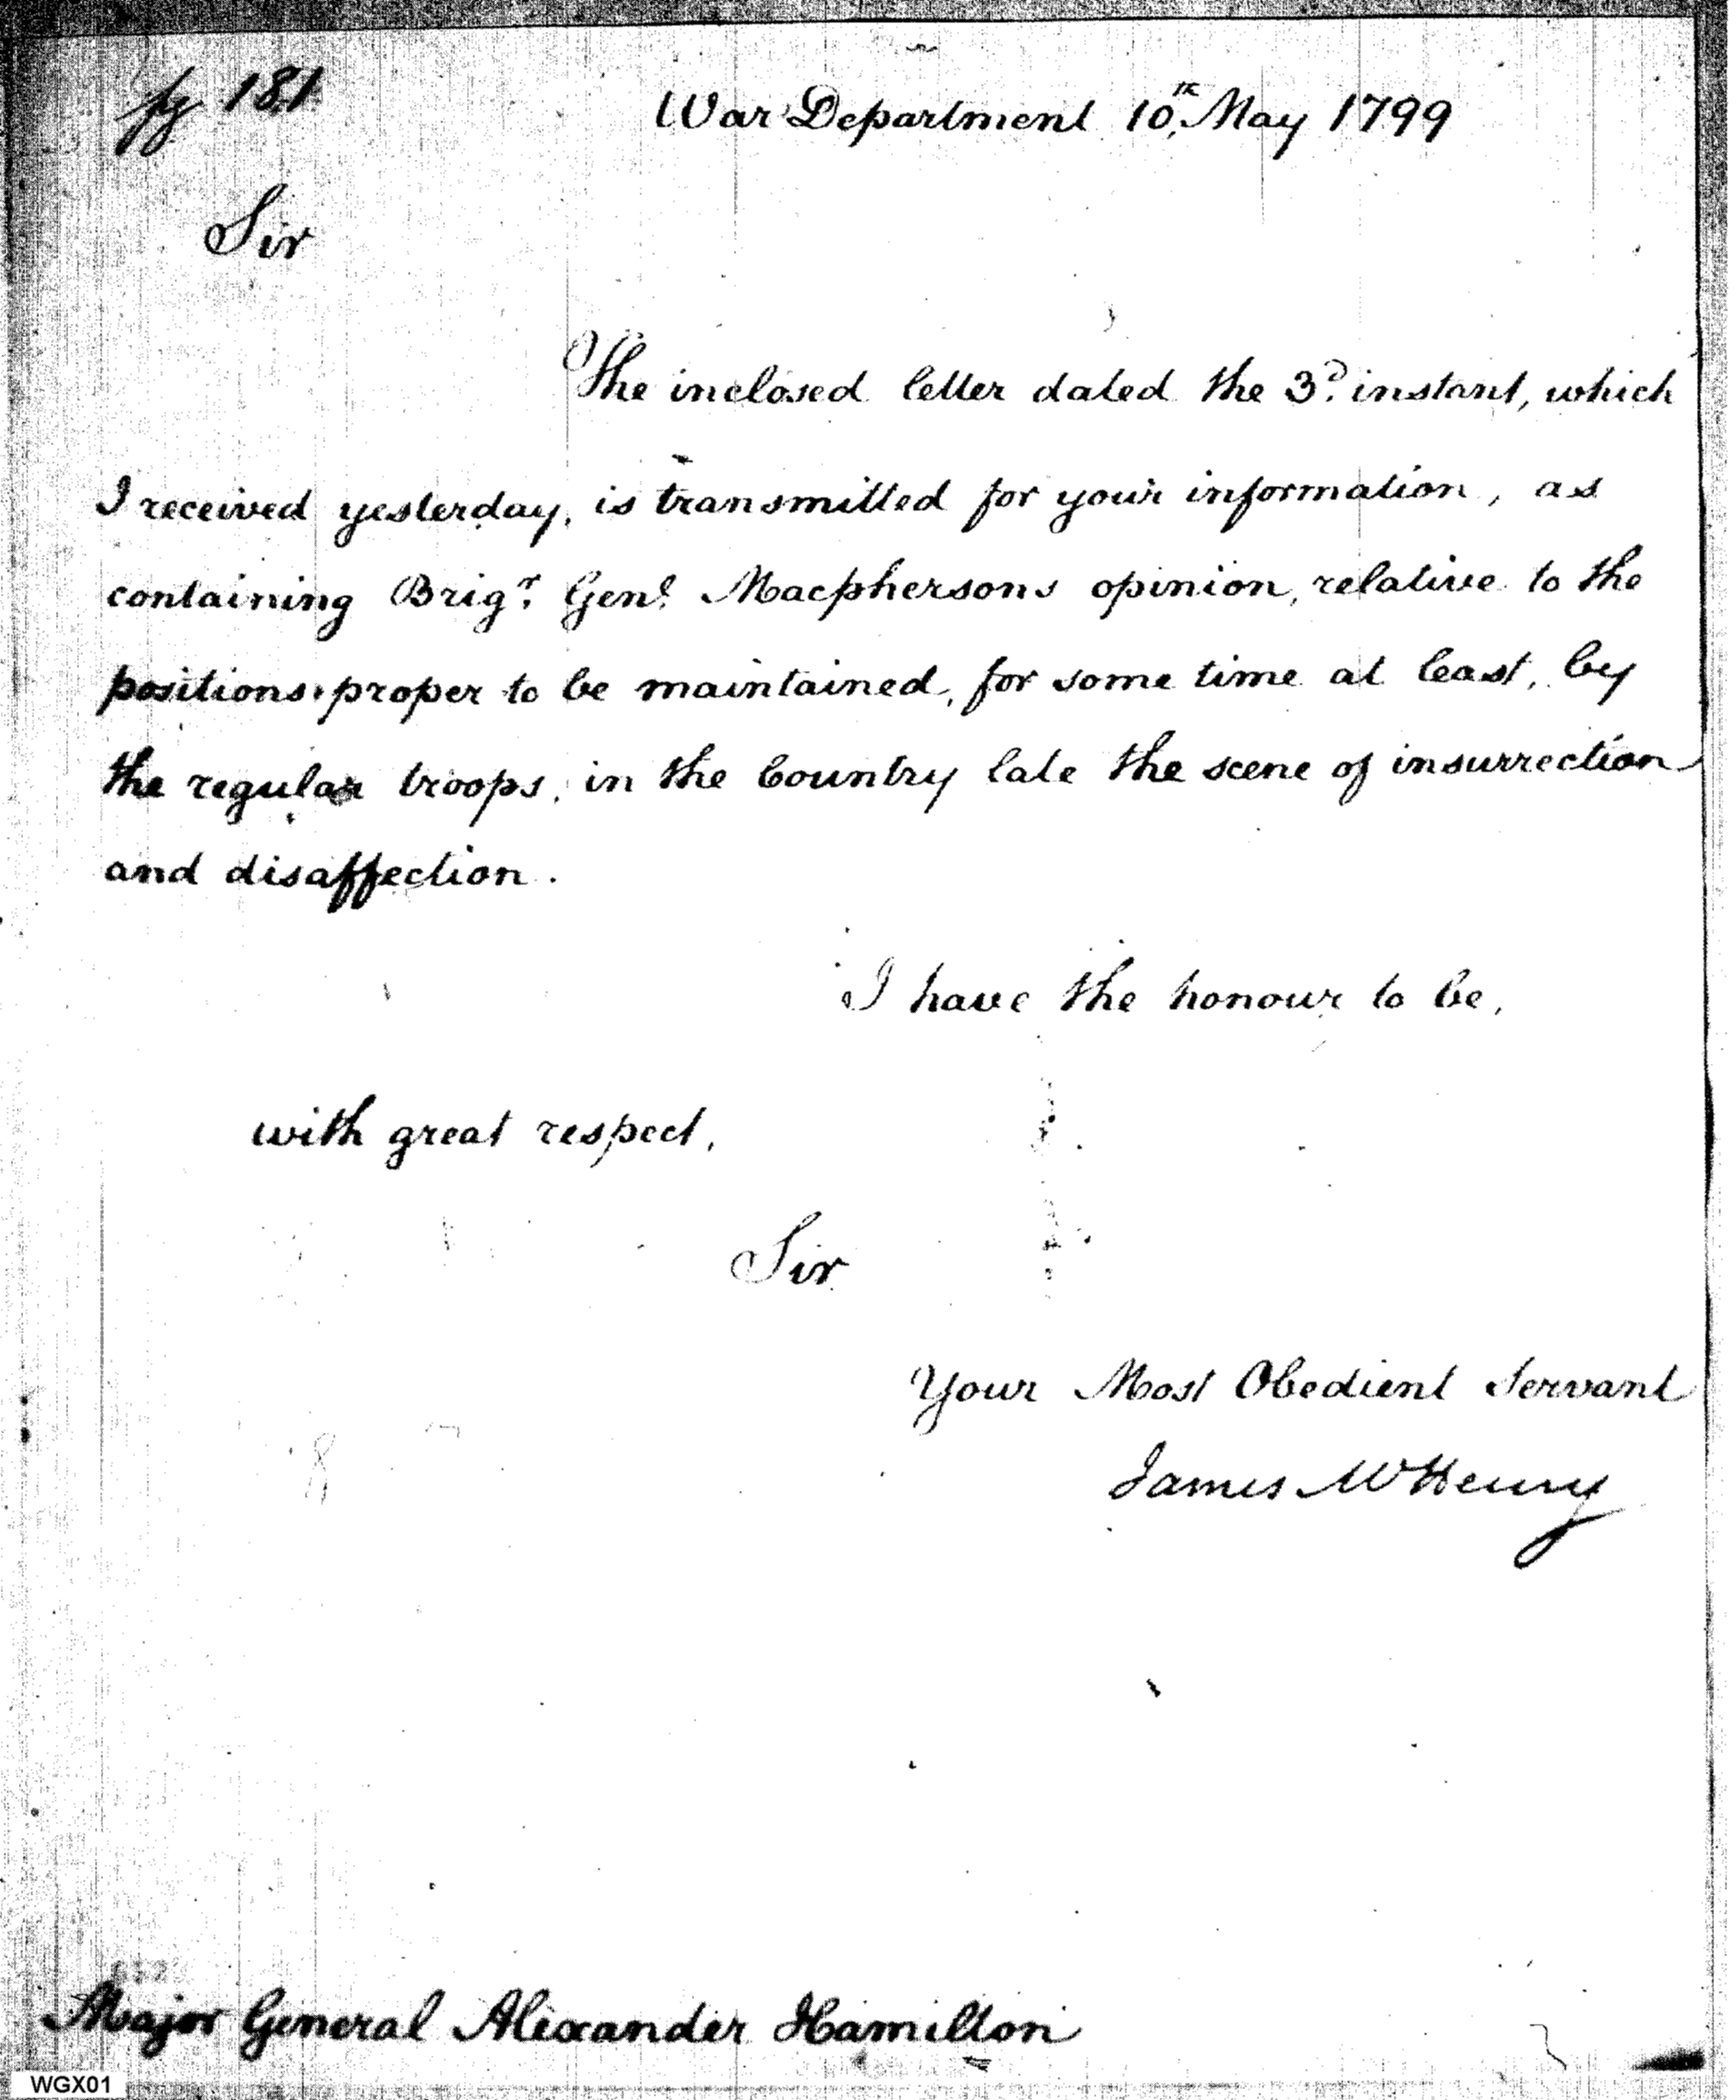 pg 181
War Department 10th May 1799
Sir
The inclosed letter dated the 3d. instant, which
I received yesterday, is transmitted for your information, as
containing Brigr. Genl. Macphersons opinion, relative to the
positions proper to be maintained, for some time at least, by
the regular troops, in the Country late the scene of insurrection
and disaffection.
I have the honour to be,
with great respect,
Sir
Your Most Obedient Servant
James McHenry
Major General Alexander Hamilton
WGX01